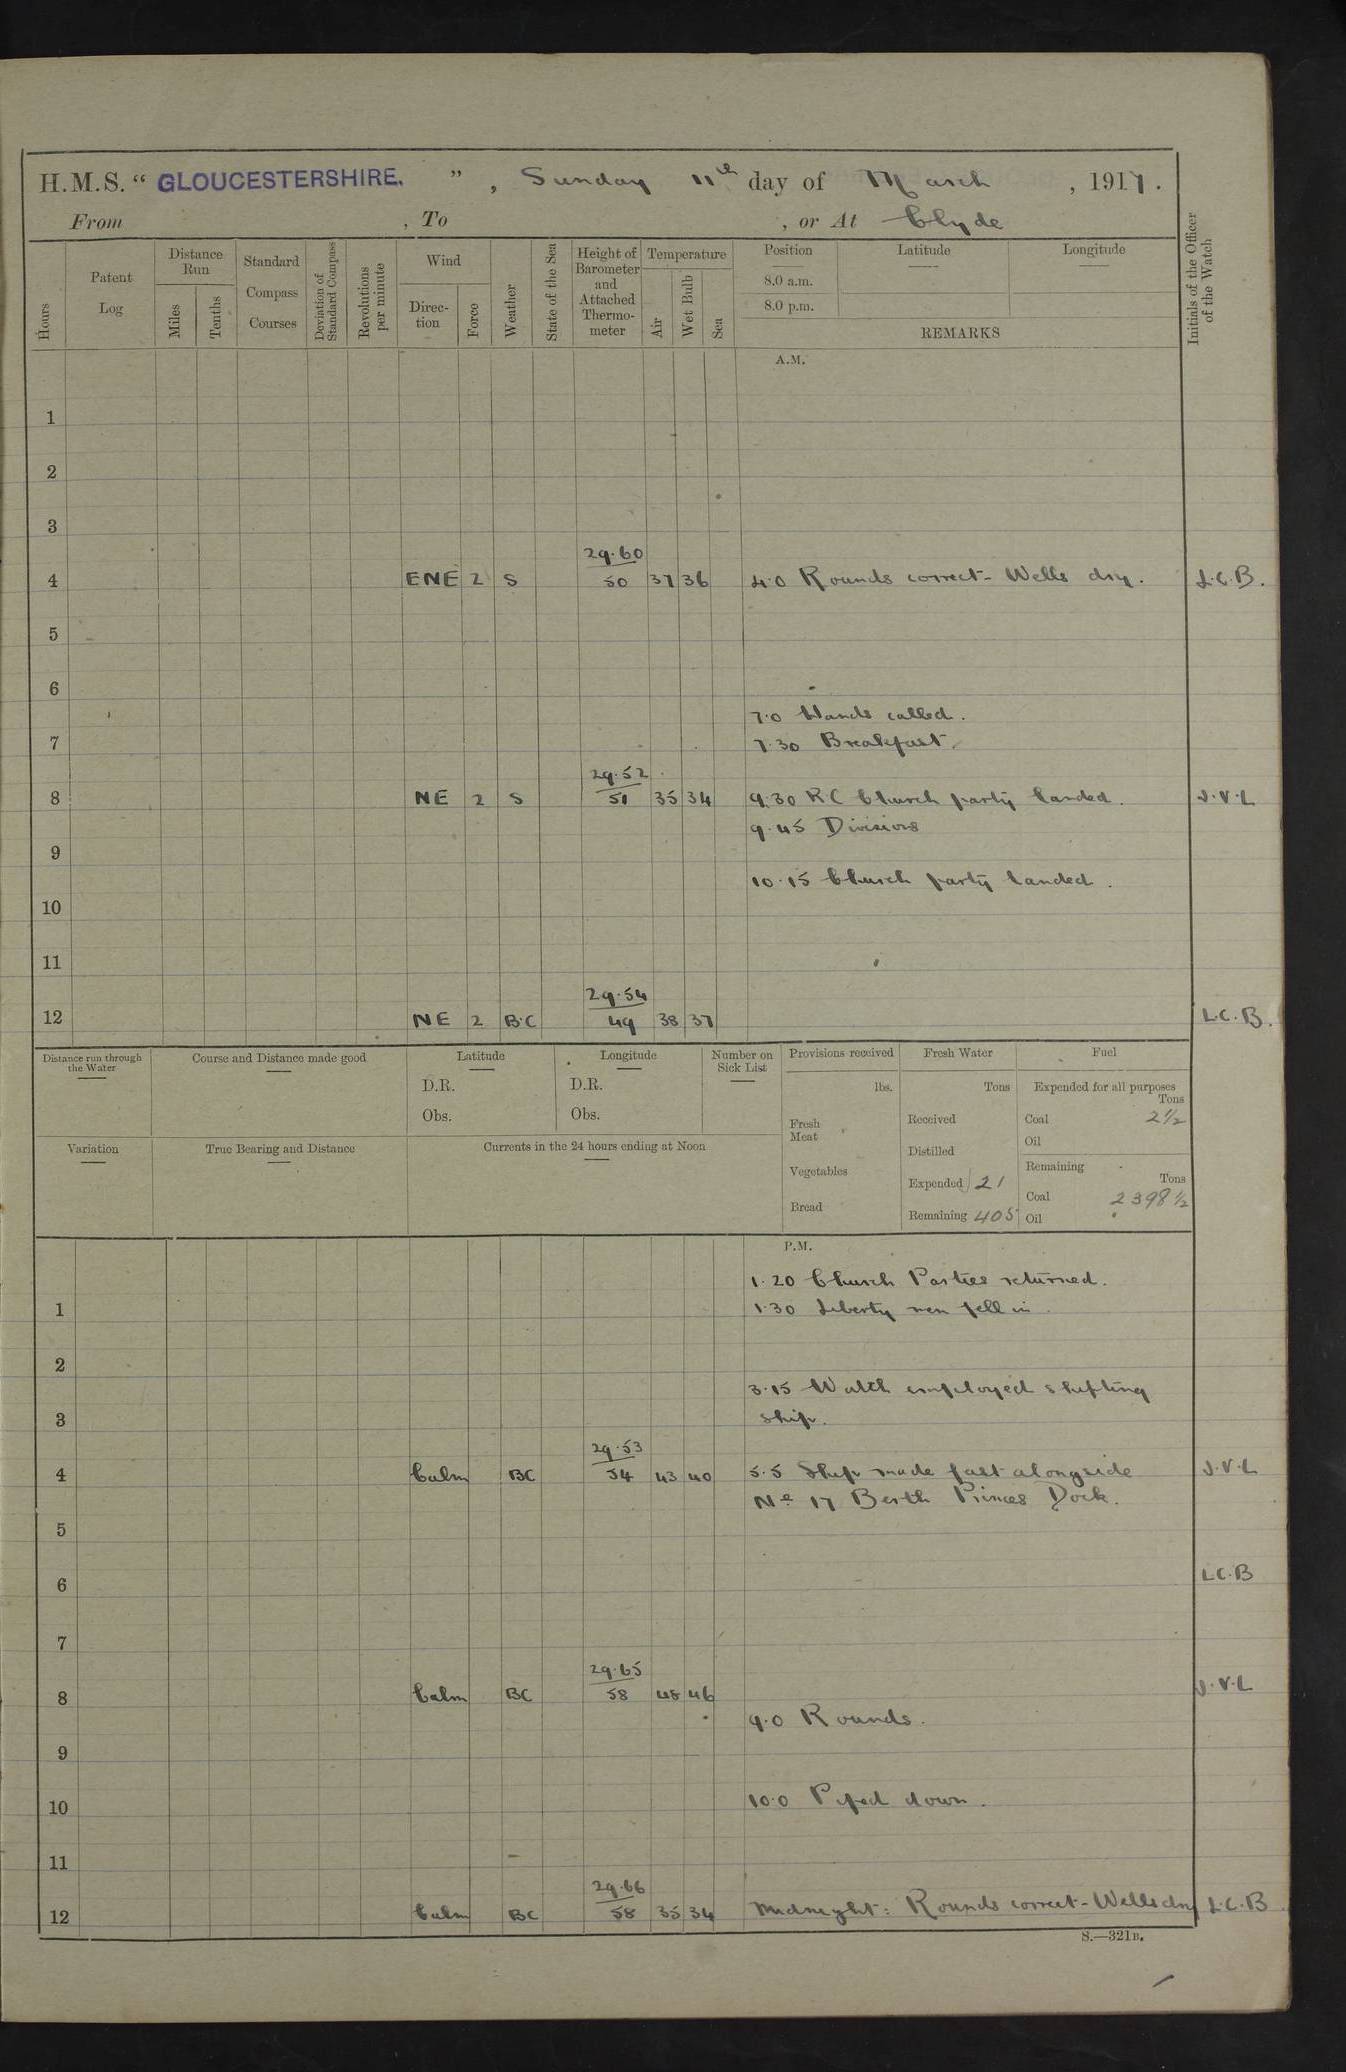 H.M.S. “ GLOUCESTERSHIRE. ” , Sunday 11th day of March , 1917.
From , To , or At Clyde
Hours
Patent Log
Distance Run
Miles
Tenths
Standard Compass Courses
Deviation of Standard Compass
Revolutions per minute
Wind
Direc-tion
Force
Weather
State of the Sea
Height of Barometer and Attached Thermo-meter
Temperature
Air
Wet Bulb
Sea
Position
8.0 a.m.
8.0 p.m.
Latitude
Longitude
REMARKS
Initials of the Officer of the Watch
A.M.
1
2
3
29.60
4 ENE 2 S 50 37 36 4.0 Rounds correct - Wells dry. L.C.B.
5
6
7.0 Hands called.
7 7.30 Breakfast.
29.52
8 NE 2 S 51 35 34 9.30 RC Church party landed. J.V.L
9.45 Divisions
9
10.15 Church party landed.
10
11
29.54
12 NE 2 B.C 49 38 37 L.C.B.
Distance run through the Water
Course and Distance made good
Latitude
D.R.
Obs.
Longitude
D.R.
Obs.
Number on Sick List
Provisions received
lbs.
Fresh Meat
Vegetables
Bread
Fresh Water
Tons
Received
Distilled
Expended 21
Remaining 405
Fuel
Expended for all purposes
Tons
Coal 2½
Oil
Remaining
Tons
Coal 2398½
Oil
Variation
True Bearing and Distance
Currents in the 24 hours ending at Noon
P.M.
1.20 Church Parties returned.
1 1.30 Liberty men fell in.
2
3.15 Watch employed shifting
3 ship.
29.53
4 Calm BC 54 43 40 5.5 Ship made fast alongside J.V.L
No 17 Berth Princes Dock.
5
6 L.C.B
7
29.65
8 Calm BC 58 48 46 J.V.L
9.0 Rounds.
9
10 10.0 Piped down.
11
29.66
12 Calm BC 58 35 34 Midnight: Rounds correct - Wells dry L.C.B
S.—321B.